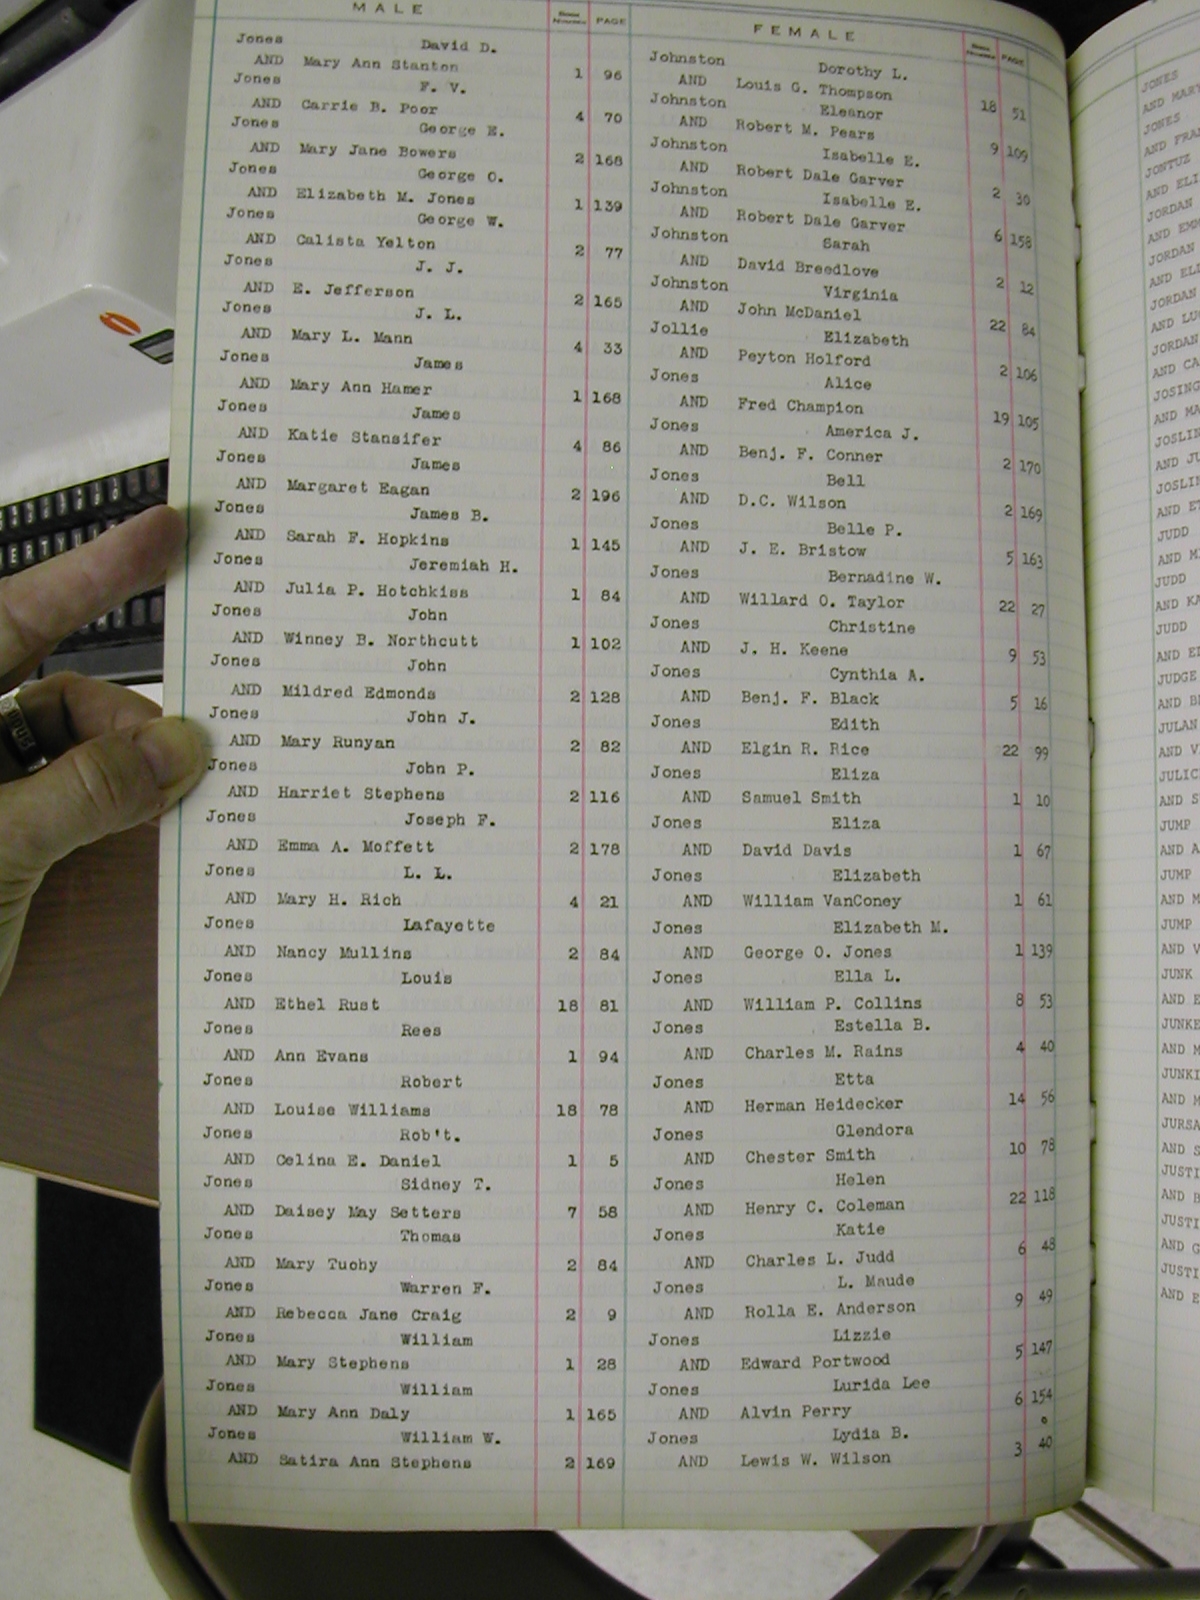 MALE
BOOK NUMBER PAGE
Jones David D.
AND Mary Ann Stanton 1 96
Jones F. V.
AND Carrie B. Poor 4 70
Jones George E.
AND Mary Jane Bowers 2 168
Jones George O.
AND Elizabeth M. Jones 1 139
Jones George W.
AND Calista Yelton 2 77
Jones J. J.
AND E. Jefferson 2 165
Jones J. L.
AND Mary L. Mann 4 33
Jones James
AND Mary Ann Hamer 1 168
Jones James
AND Katie Stansifer 4 86
Jones James
AND Margaret Eagan 2 196
Jones James B.
AND Sarah F. Hopkins 1 145
Jones Jeremiah H.
AND Julia P. Hotchkiss 1 84
Jones John
AND Winney B. Northcutt 1 102
Jones John
AND Mildred Edmonds 2 128
Jones John J.
AND Mary Runyan 2 82
Jones John P.
AND Harriet Stephens 2 116
Jones Joseph F.
AND Emma A. Moffett 2 178
Jones L. L.
AND Mary H. Rich 4 21
Jones Lafayette
AND Nancy Mullins 2 84
Jones Louis
AND Ethel Rust 18 81
Jones Rees
AND Ann Evans 1 94
Jones Robert
AND Louise Williams 18 78
Jones Rob't.
AND Celina E. Daniel 1 5
Jones Sidney T.
AND Daisey May Setters 7 58
Jones Thomas
AND Mary Tuohy 2 84
Jones Warren F.
AND Rebecca Jane Craig 2 9
Jones William
AND Mary Stephens 1 28
Jones William
AND Mary Ann Daly 1 165
Jones William W.
AND Satira Ann Stephens 2 169
FEMALE
BOOK NUMBER PAGE
Johnston Dorothy L.
AND Louis G. Thompson 18 51
Johnston Eleanor
AND Robert M. Pears 9 109
Johnston Isabelle E.
AND Robert Dale Garver 2 30
Johnston Isabelle E.
AND Robert Dale Garver 6 158
Johnston Sarah
AND David Breedlove 2 12
Johnston Virginia
AND John McDaniel 22 84
Jollie Elizabeth
AND Peyton Holford 2 106
Jones Alice
AND Fred Champion 19 105
Jones America J.
AND Benj. F. Conner 2 170
Jones Bell
AND D.C. Wilson 2 169
Jones Belle P.
AND J. E. Bristow 5 163
Jones Bernadine W.
AND Willard O. Taylor 22 27
Jones Christine
AND J. H. Keene 9 53
Jones Cynthia A.
AND Benj. F. Black 5 16
Jones Edith
AND Elgin R. Rice 22 99
Jones Eliza
AND Samuel Smith 1 10
Jones Eliza
AND David Davis 1 67
Jones Elizabeth
AND William VanConey 1 61
Jones Elizabeth M.
AND George O. Jones 1 139
Jones Ella L.
AND William P. Collins 8 53
Jones Estella B.
AND Charles M. Rains 4 40
Jones Etta
AND Herman Heidecker 14 56
Jones Glendora
AND Chester Smith 10 78
Jones Helen
AND Henry C. Coleman 22 118
Jones Katie
AND Charles L. Judd 6 48
Jones L. Maude
AND Rolla E. Anderson 9 49
Jones Lizzie
AND Edward Portwood 5 147
Jones Lurida Lee
AND Alvin Perry 6 154
Jones Lydia B.
AND Lewis W. Wilson 3 40
JONES
AND MARY
JONES
AND FRA
JONTUZ
AND ELI
JORDAN
AND EM
JORDAN
AND ELI
JORDAN
AND LU
JORDAN
AND CA
JOSING
AND MA
JOSLIN
AND JU
JOSLIN
AND E
JUDD
AND M
JUDD
AND KA
JUDD
AND E
JUDGE
AND B
JULAN
AND V
JULIC
AND S
JUMP
AND A
JUMP
AND M
JUMP
AND V
JUNK
AND E
JUNKE
AND M
JUNKI
AND M
JURSA
AND S
JUSTI
AND B
JUSTI
AND G
JUSTI
AND E